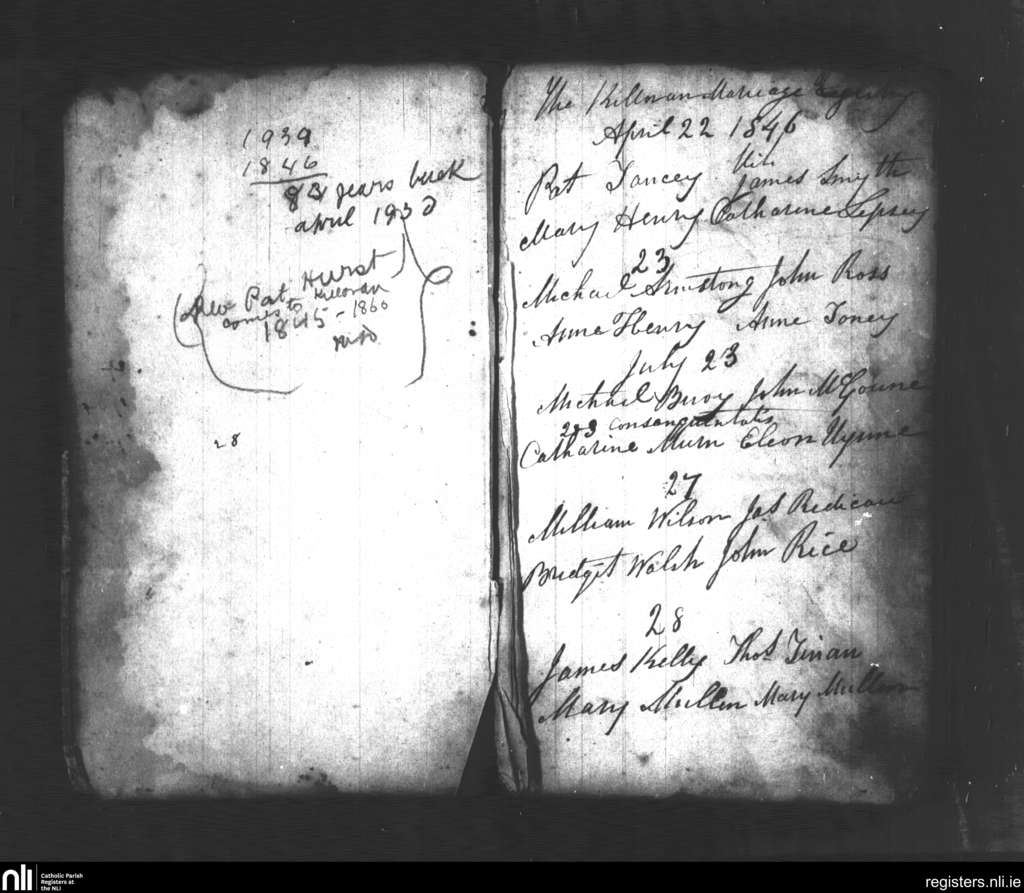 1939
1846
83 years back
april 1930
(Rev Pat Hurst
comes to Killoran
1845 - 1860
28
The Killoran Marriage Registry
April 22 1846
Pat Dancey James Smyth
Mary Henry Catharine Lepsey
23
Michael Armstong John Ross
Anne Henry Anne Toney
July 23
Michael Buoy John McGoune
2 & 3 consanguintatis
Catharine Murn Eleon Wynne
27
William Wilson Jas Redican
Bridget Walsh John Rice
28
James Kelly Thos Tivan
Mary Mullen Mary Mullen
nli Catholic Parish
Registers at
the NLI
registers.nli.ie